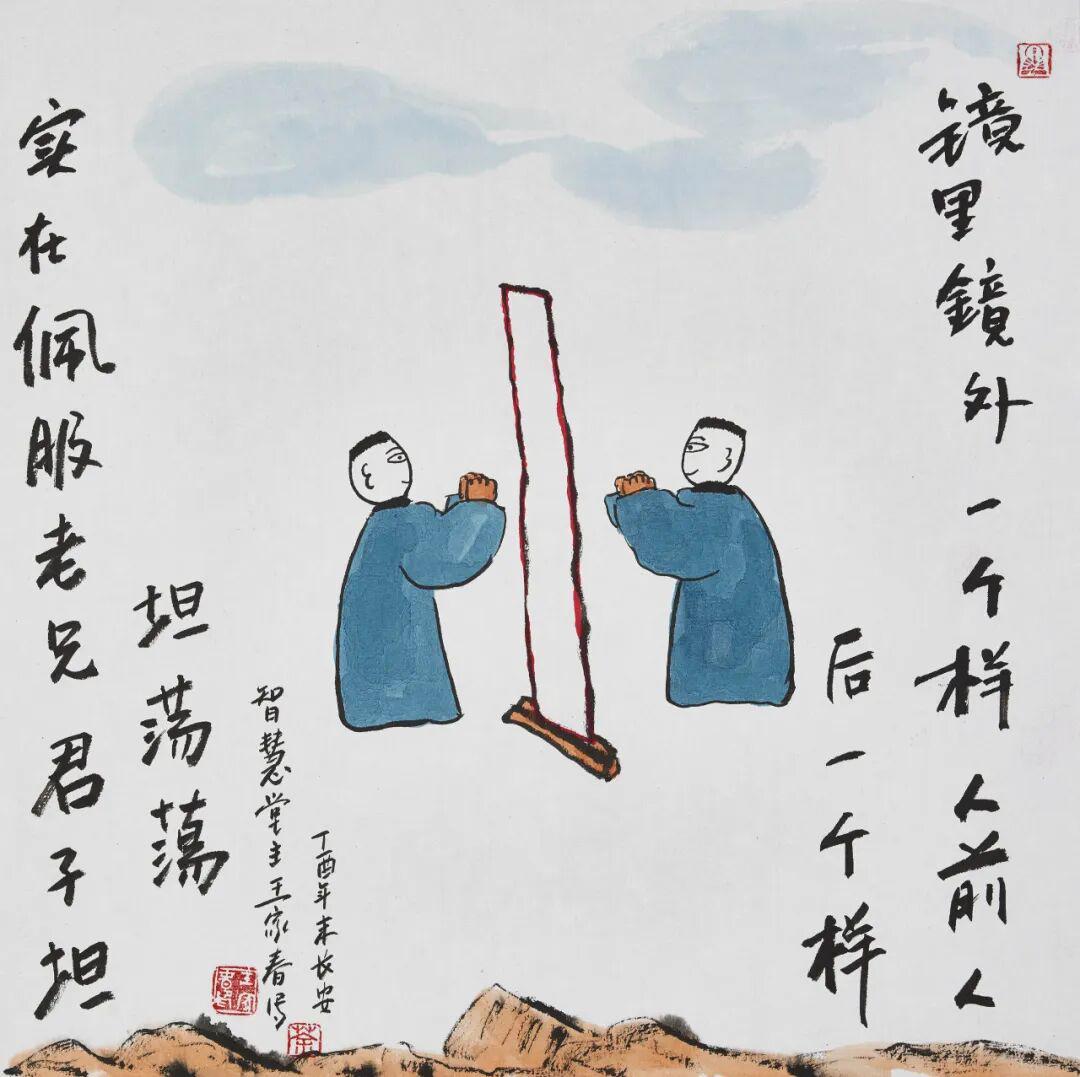 镜里鏡外一个样人前人
后一个样
实在佩服老兄君子坦
坦荡蕩
智慧堂主王家春写
丁酉年末长安